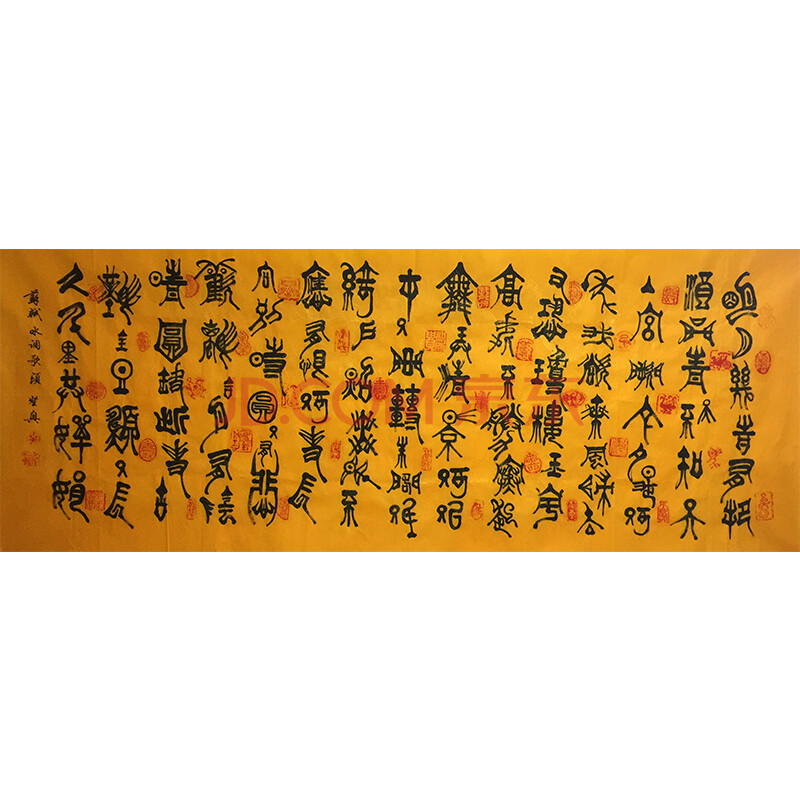 明月幾時有把
酒問青天不知天
上宮闕今夕是何
年我欲乘風歸去
又恐瓊樓玉宇
高處不勝寒起
舞弄清影何似
在人間轉朱閣低
綺戶照無眠不
應有恨何事長
向別時圓人有悲
歡離合月有陰
晴圓缺此事古
難全但願人長
久千里共嬋娟
蘇軾水調歌頭
JD.COM 京东